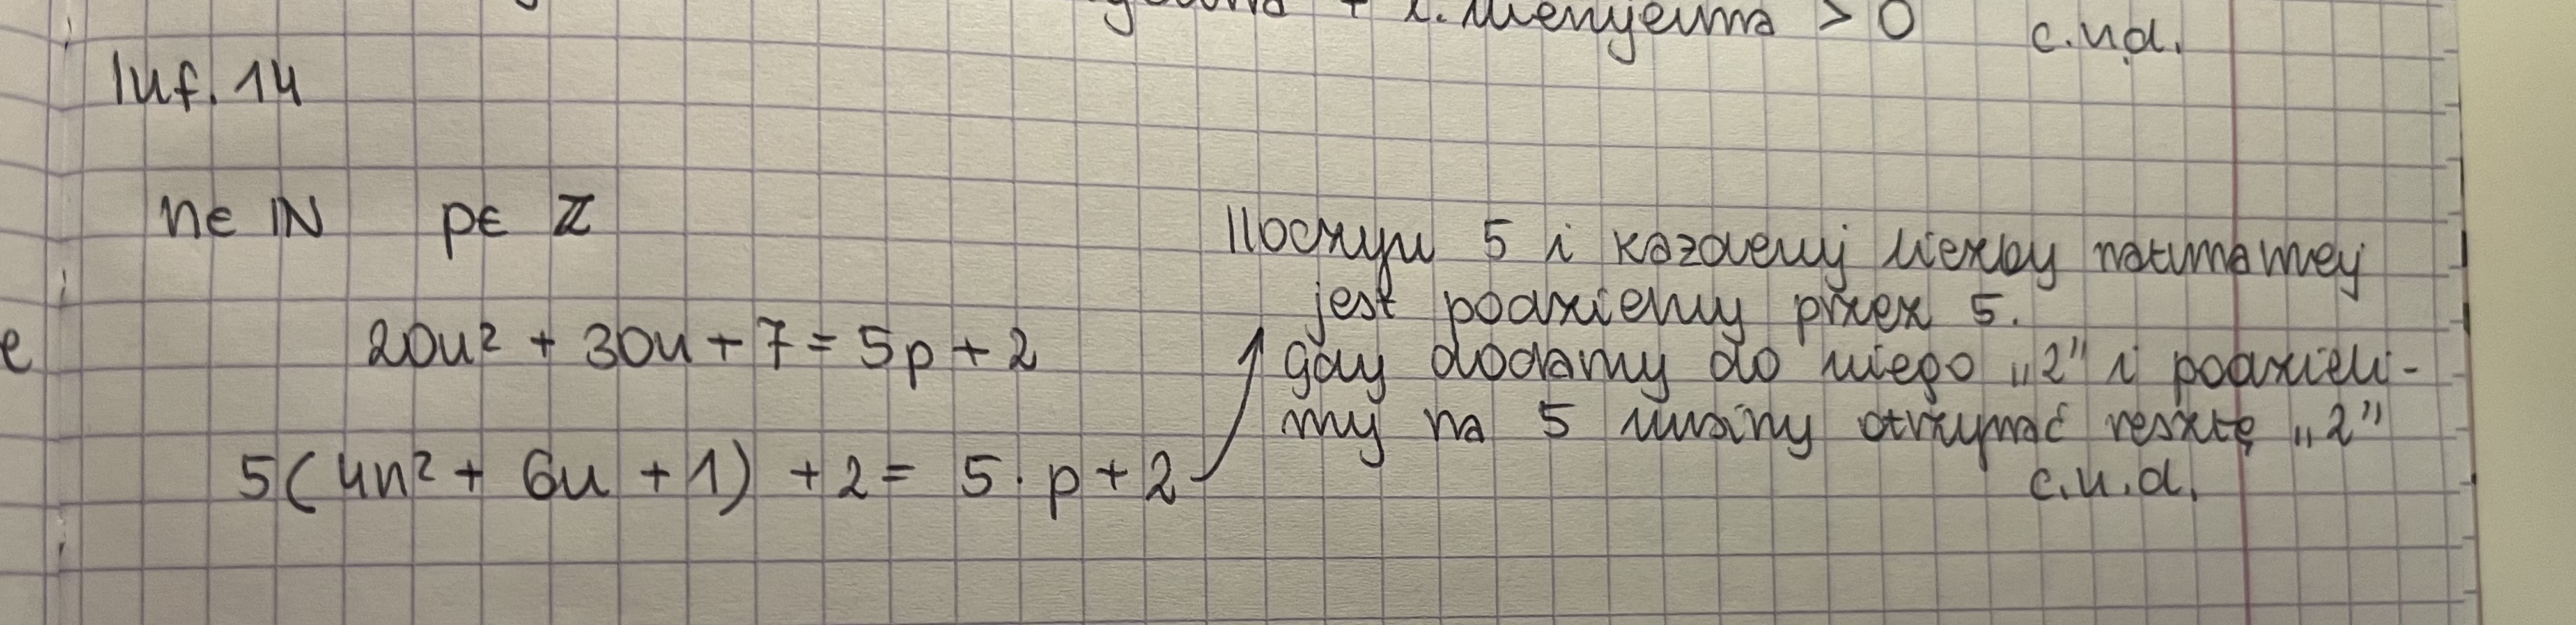 i. nieujemna > 0 c.n.d.
Inf. 14
n∈ ℕ p∈ ℤ
20n² + 30n + 7 = 5p + 2
5(4n² + 6n + 1) + 2 = 5 · p + 2
Iloczyn 5 i każdej liczby naturalnej
jest podzielny przez 5.
gdy dodamy do niego „2” i podzieli-
my na 5 musimy otrzymać resztę „2”
c.n.d.
e